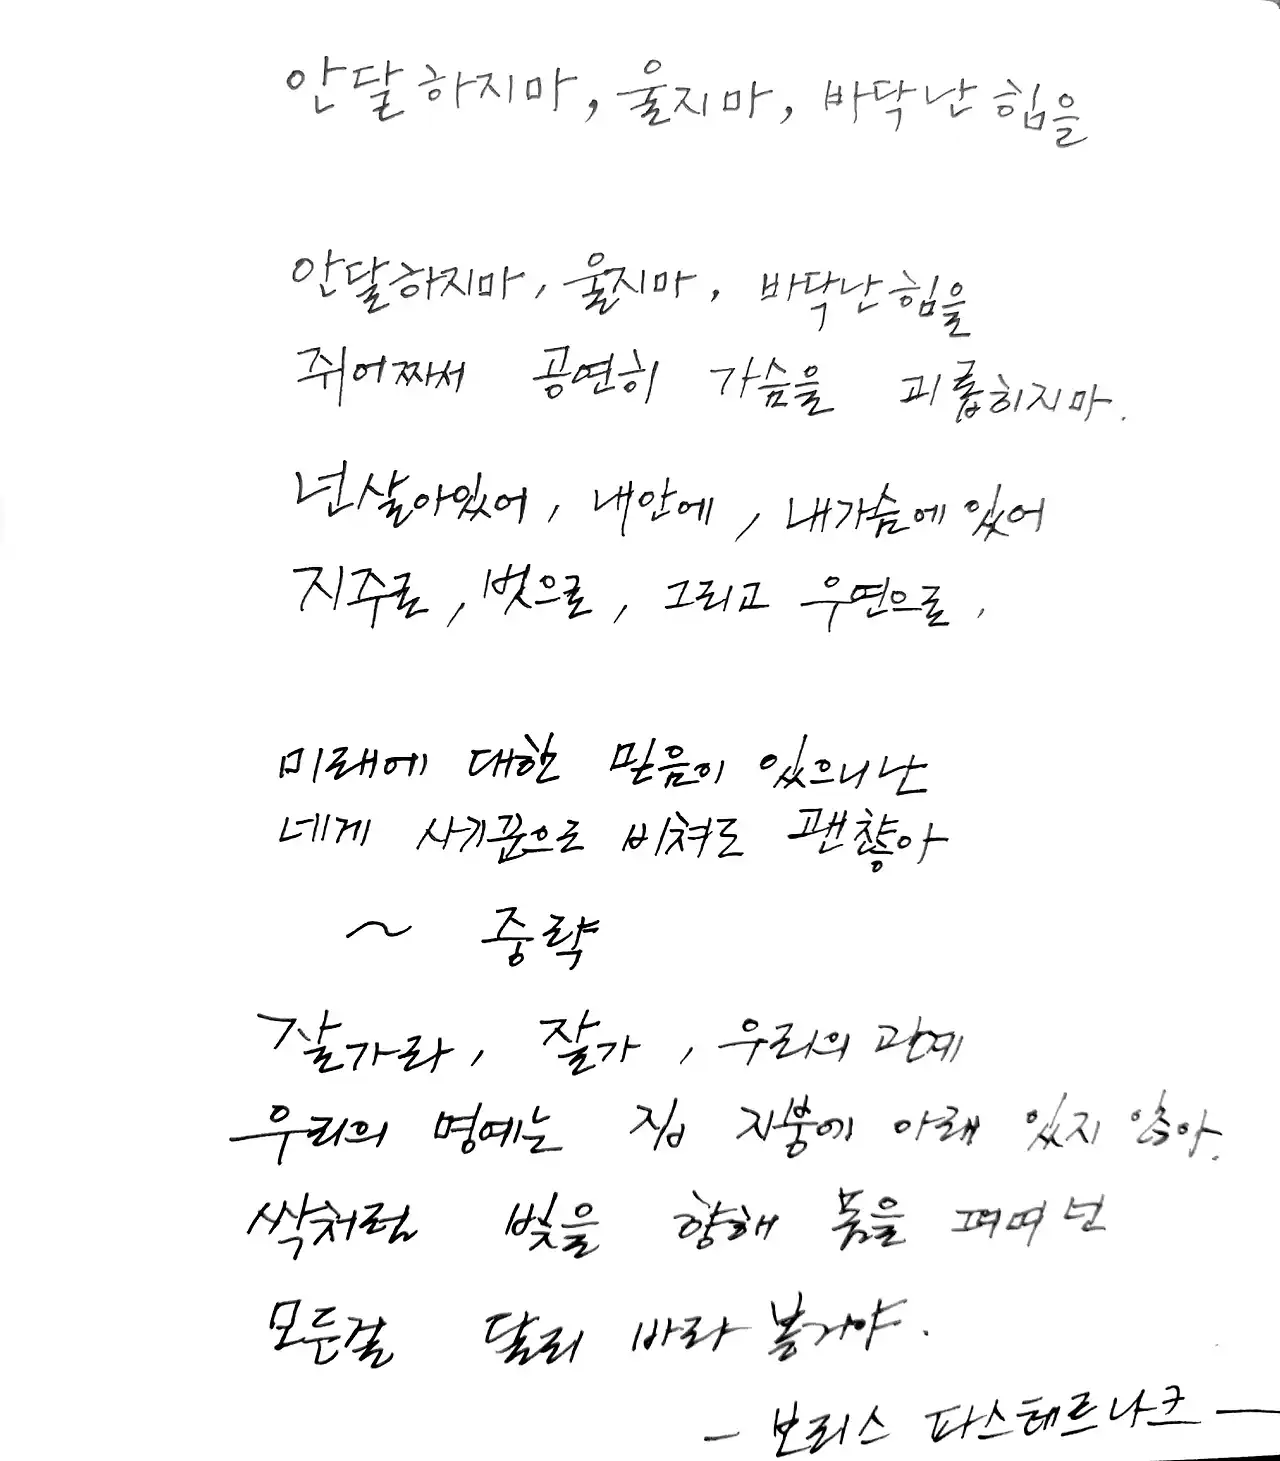 안달하지마, 울지마, 바닥난 힘을
안달하지마, 울지마, 바닥난 힘을
쥐어짜서 공연히 가슴을 괴롭히지마.
넌 살아있어, 내안에, 내가슴에 있어
지주로, 벗으로, 그리고 우연으로,
미래에 대한 믿음이 있으니 난
네게 사기꾼으로 비쳐도 괜찮아
~ 중략
잘가라, 잘가, 우리의 관계
우리의 명예는 집 지붕에 아래 있지 않아.
싹처럼 빛을 향해 몸을 펴며 넌
모든걸 달리 바라 볼거야.
- 보리스 파스테르나크 -